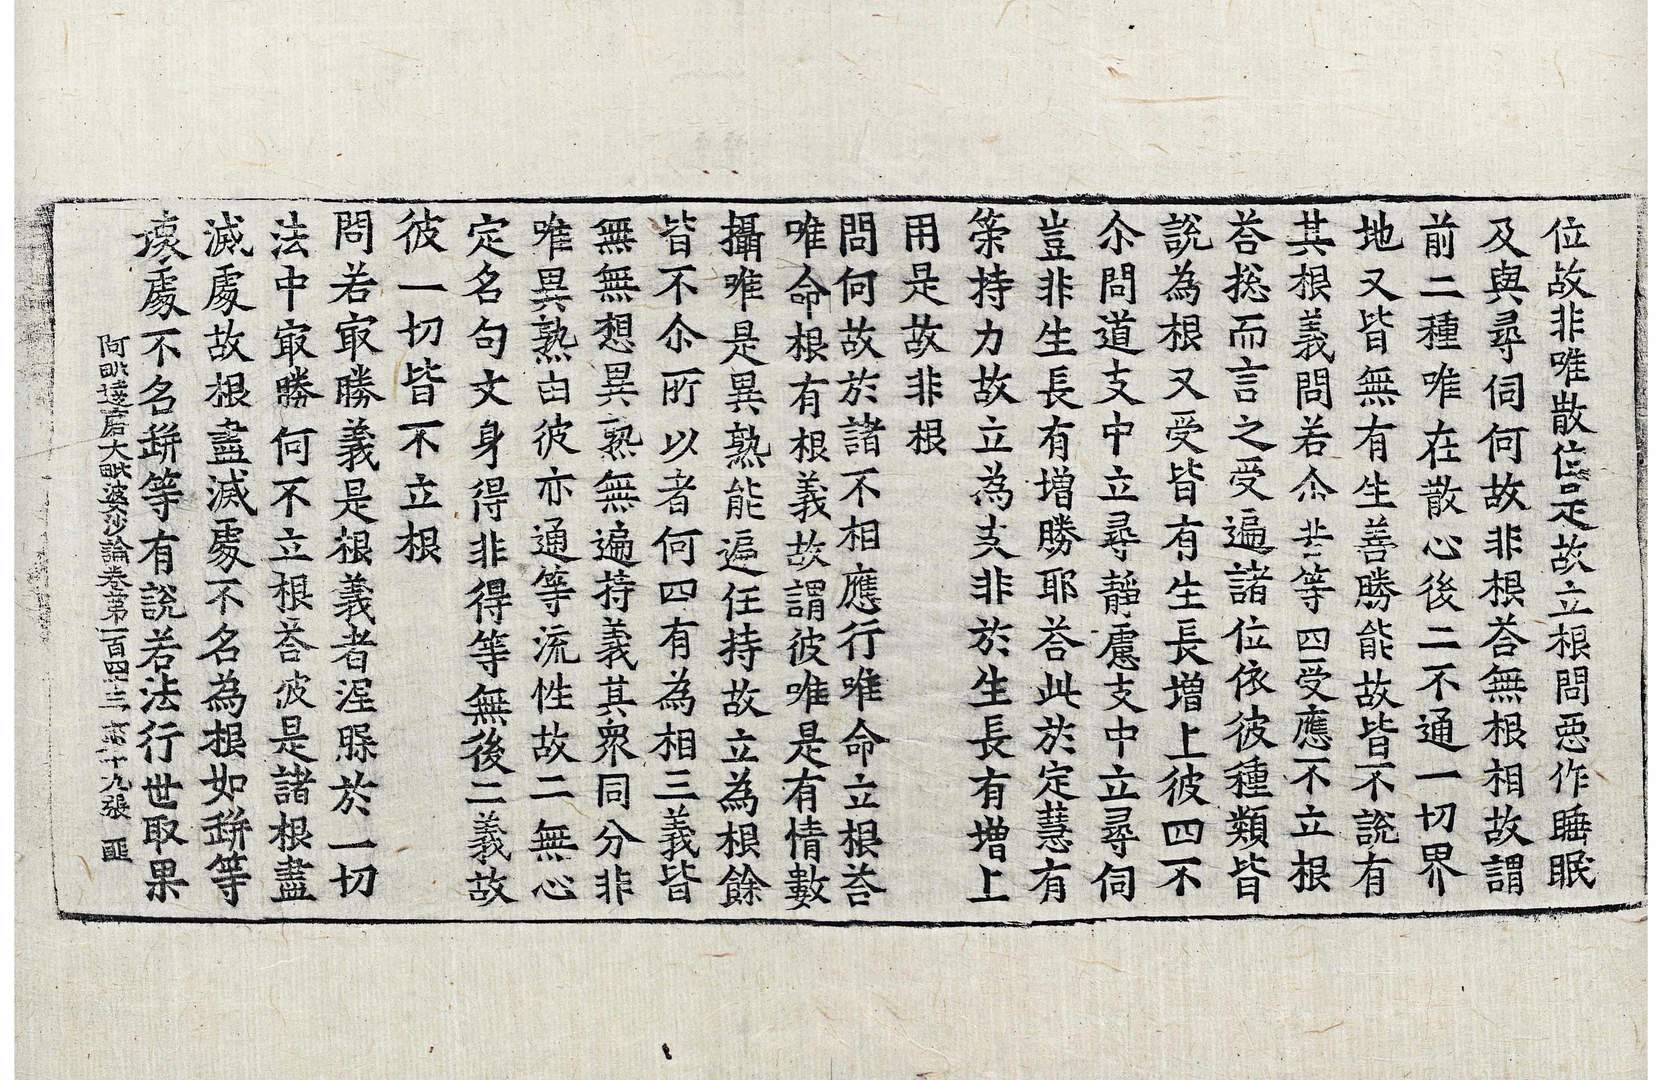 位故非唯散位是故立根問惡作睡眠
及與尋伺何故非根荅無根相故謂
前二種唯在散心後二不通一切界
地又皆無有生善勝能故皆不說有
其根義問若尒苦等四受應不立根
荅捴而言之受遍諸位依彼種類皆
說為根又受皆有生長增上彼四不
尒問道支中立尋靜慮支中立尋伺
豈非生長有增勝耶荅此於定慧有
策持力故立為支非於生長有增上
用是故非根
問何故於諸不相應行唯命立根荅
唯命根有根義故謂彼唯是有情數
攝唯是異熟能遍任持故立為根餘
皆不尒所以者何四有為相三義皆
無無想異熟無遍持義其衆同分非
唯異熟由彼亦通等流性故二無心
定名句文身得非得等無後二義故
彼一切皆不立根
問若㝡勝義是根義者涅槃於一切
法中㝡勝何不立根荅彼是諸根盡
滅處故根盡滅處不名為根如缾等
壞處不名缾等有說若法行世取果
阿毗達磨大毗婆沙論卷第一百四十三 第十九張 匪